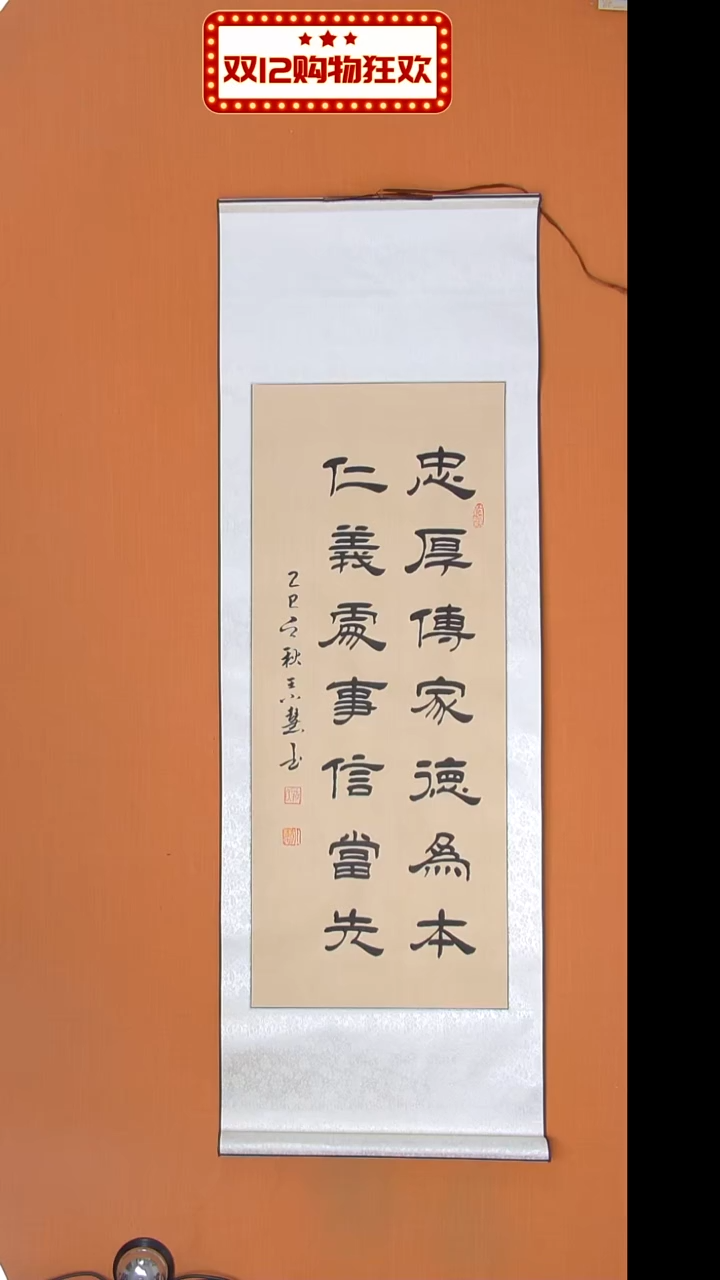 双12购物狂欢
忠厚傳家德為本
仁義處事信當先
乙巳之秋王小慧书